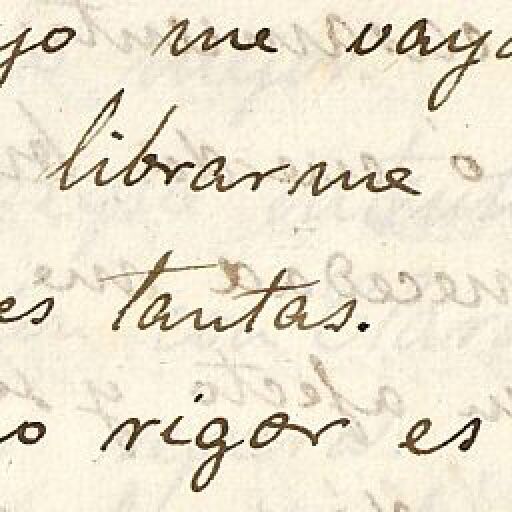 yo me vaya
librarme
es tantas.
o rigor es